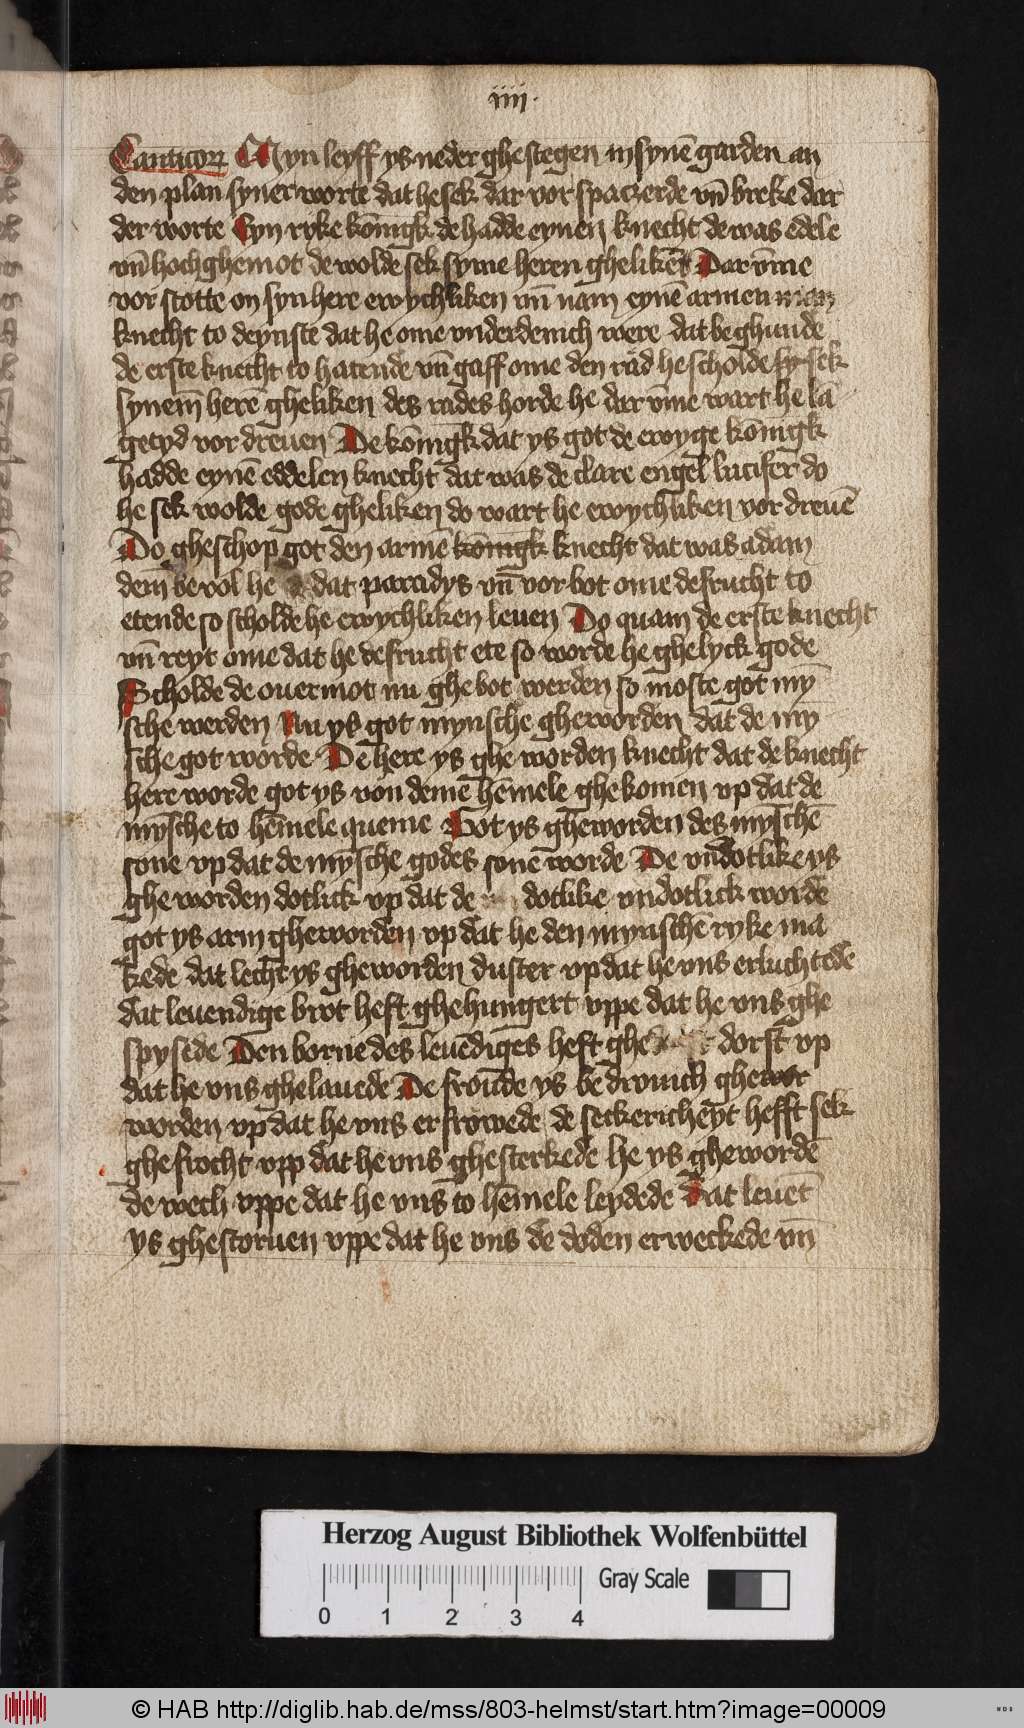 iiii.
Canticorum Myn leyff ys neder ghestegen in synē garden an
den plan syner worte dat he sek dar vor spaczerde vn̄ breke dar
der worte Eyn ryke kōnigk de hadde eynen knecht de was edele
vn̄ hochghemot de wolde sek syme heren ghelikēt Dar v̄me
vor stotte on syn here ewychliken vn̄ nam eynē armen man
knecht to deynste dat he ome vnderdenich were dat beghunde
de erste knecht to hatende vn̄ gaff ome den rād he scholde sy sek
synem̄ herē gheliken des rades horde he dar v̄me wart he lā
getyd vor dreuen De kōnigk dat ys got de ewyge kōnigk
hadde eynē eddelen knecht dat was de clare engel lucifer do
he sek wolde gode gheliken do wart he ewychliken vor dreuē
Do gheschop got den armē kōnigk knecht dat was adam
dem̄ bevol he dat paradys vn̄ vor bot ome de frucht to
etende so scholde he ewychliken leuen Do quam de erste knecht
vn̄ reyt ome dat he de frucht ete so worde he ghelyck gode
Scholde de ouermot nu ghe bot werden so moste got mȳ
sche werden Nu ys got mynsche gheworden dat de mȳ
sche got worde De here ys ghe worden knecht dat de knecht
here worde got ys von demē hēmele ghekomen vp dat de
mȳsche to hēmele queme Got ys gheworden des mȳschē
sone vp dat de mȳsche godes sone worde De vndotlike ys
ghe worden dotlick vp dat de dotlike vndotlick worde
got ys arm gheworden vp dat he den mynschē ryke ma
kede dat lecht ys gheworden duster vp dat he vns erluchtede
dat leuendige brot heft ghehungert vppe dat he vns ghe
spysede Den borne des leuēdiges heft ghe dorst vp
dat he vns ghelauede De froude ys bedrouich ghewor
worden vp dat he vns erfrowede de seckericheyt hefft sek
ghefrocht vpp dat he vns ghesterkede he ys ghewordē
de wech vppe dat he vns to hēmele leydede Dat leuēt
ys ghestoruen vppe dat he vns de doden erweckede vn̄
Herzog August Bibliothek Wolfenbüttel
Gray Scale
0 1 2 3 4
© HAB http://diglib.hab.de/mss/803-helmst/start.htm?image=00009